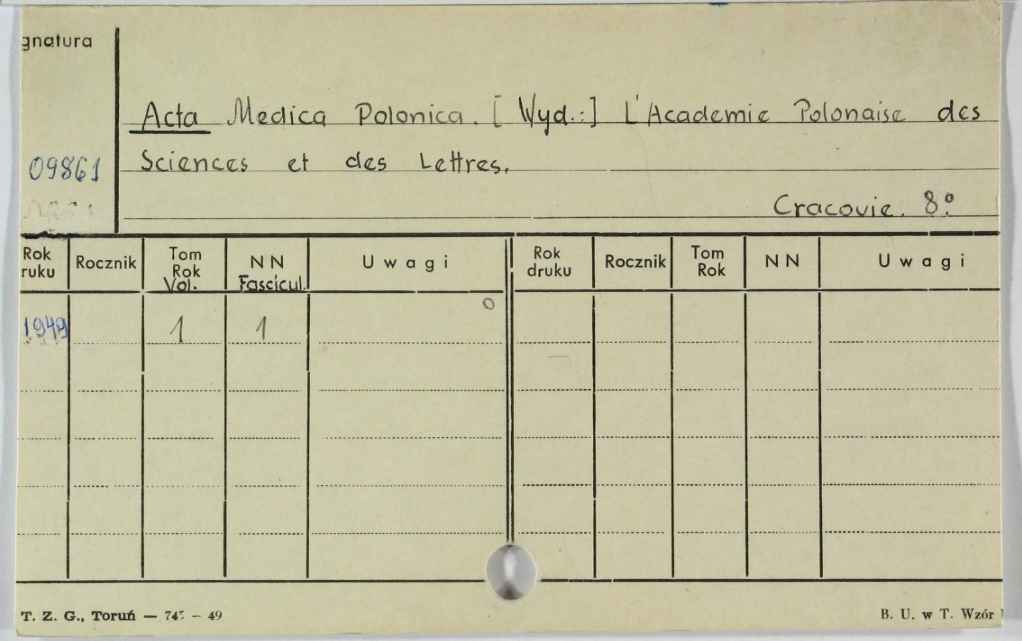 gnatura
Acta Medica Polonica. [Wyd.:] L'Academie Polonaise des
09861 Sciences et des Lettres.
Cracovie. 8º
Rok ruku Rocznik Tom Rok Vol. NN Fascicul. Uwagi Rok druku Rocznik Tom Rok NN Uwagi
1949 1 1
T. Z. G., Toruń — 49
B. U. w T. Wzór